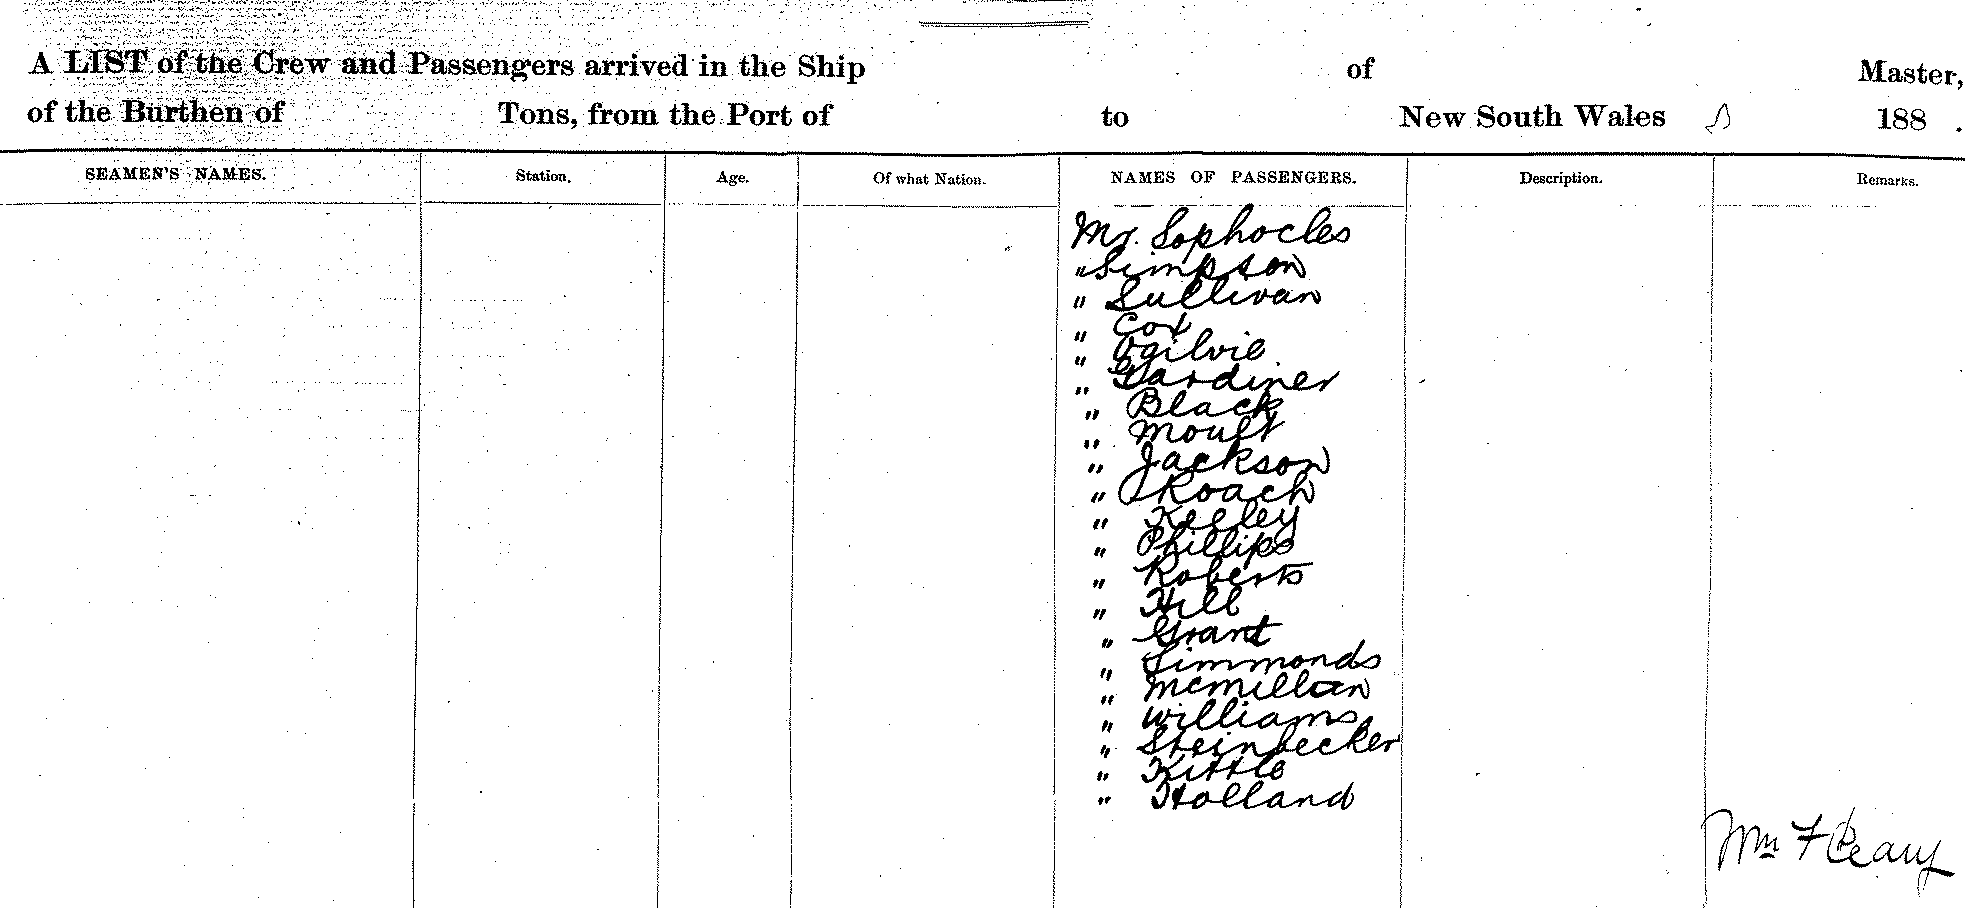 A LIST of the Crew and Passengers arrived in the Ship of Master,
of the Burthen of Tons, from the Port of to New South Wales 188 .
SEAMEN'S NAMES. Station. Age. Of what Nation. NAMES OF PASSENGERS. Description. Remarks.
Mr. Sophocles
" Simpson
" Sullivan
" Cox
" Ogilvie
" Gardiner
" Black
" Moult
" Jackson
" Roach
" Kelley
" Phillips
" Roberts
" Hill
" Grant
" Simmonds
" McMillan
" Williams
" Steinbecker
" Kittle
" Holland
Wm F Peary